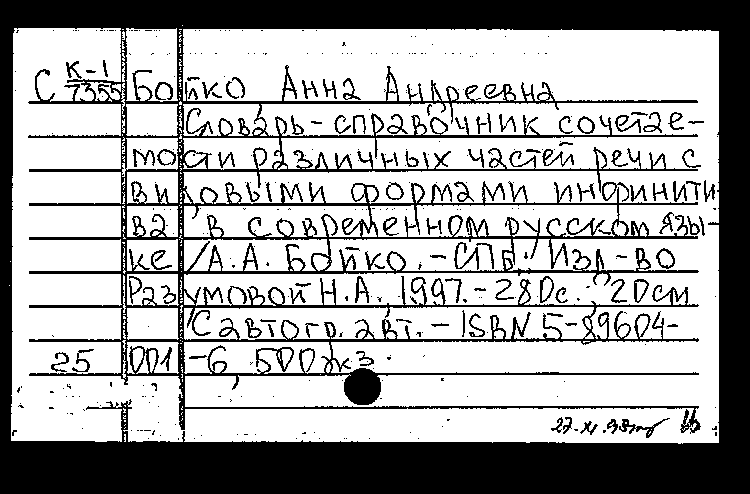 С К-1/7355 Бойко, Анна Андреевна
Словарь-справочник сочетае-
мости различных частей речи с
видовыми формами инфинити-
ва в современном русском язы-
ке / А.А. Бойко. - СПб.: Изд-во
Разумовой Н.А., 1997. - 280с.; 20см
С автогр. авт. - ISBN 5-89604-
25 001-6, 500 экз.
27-XI.98